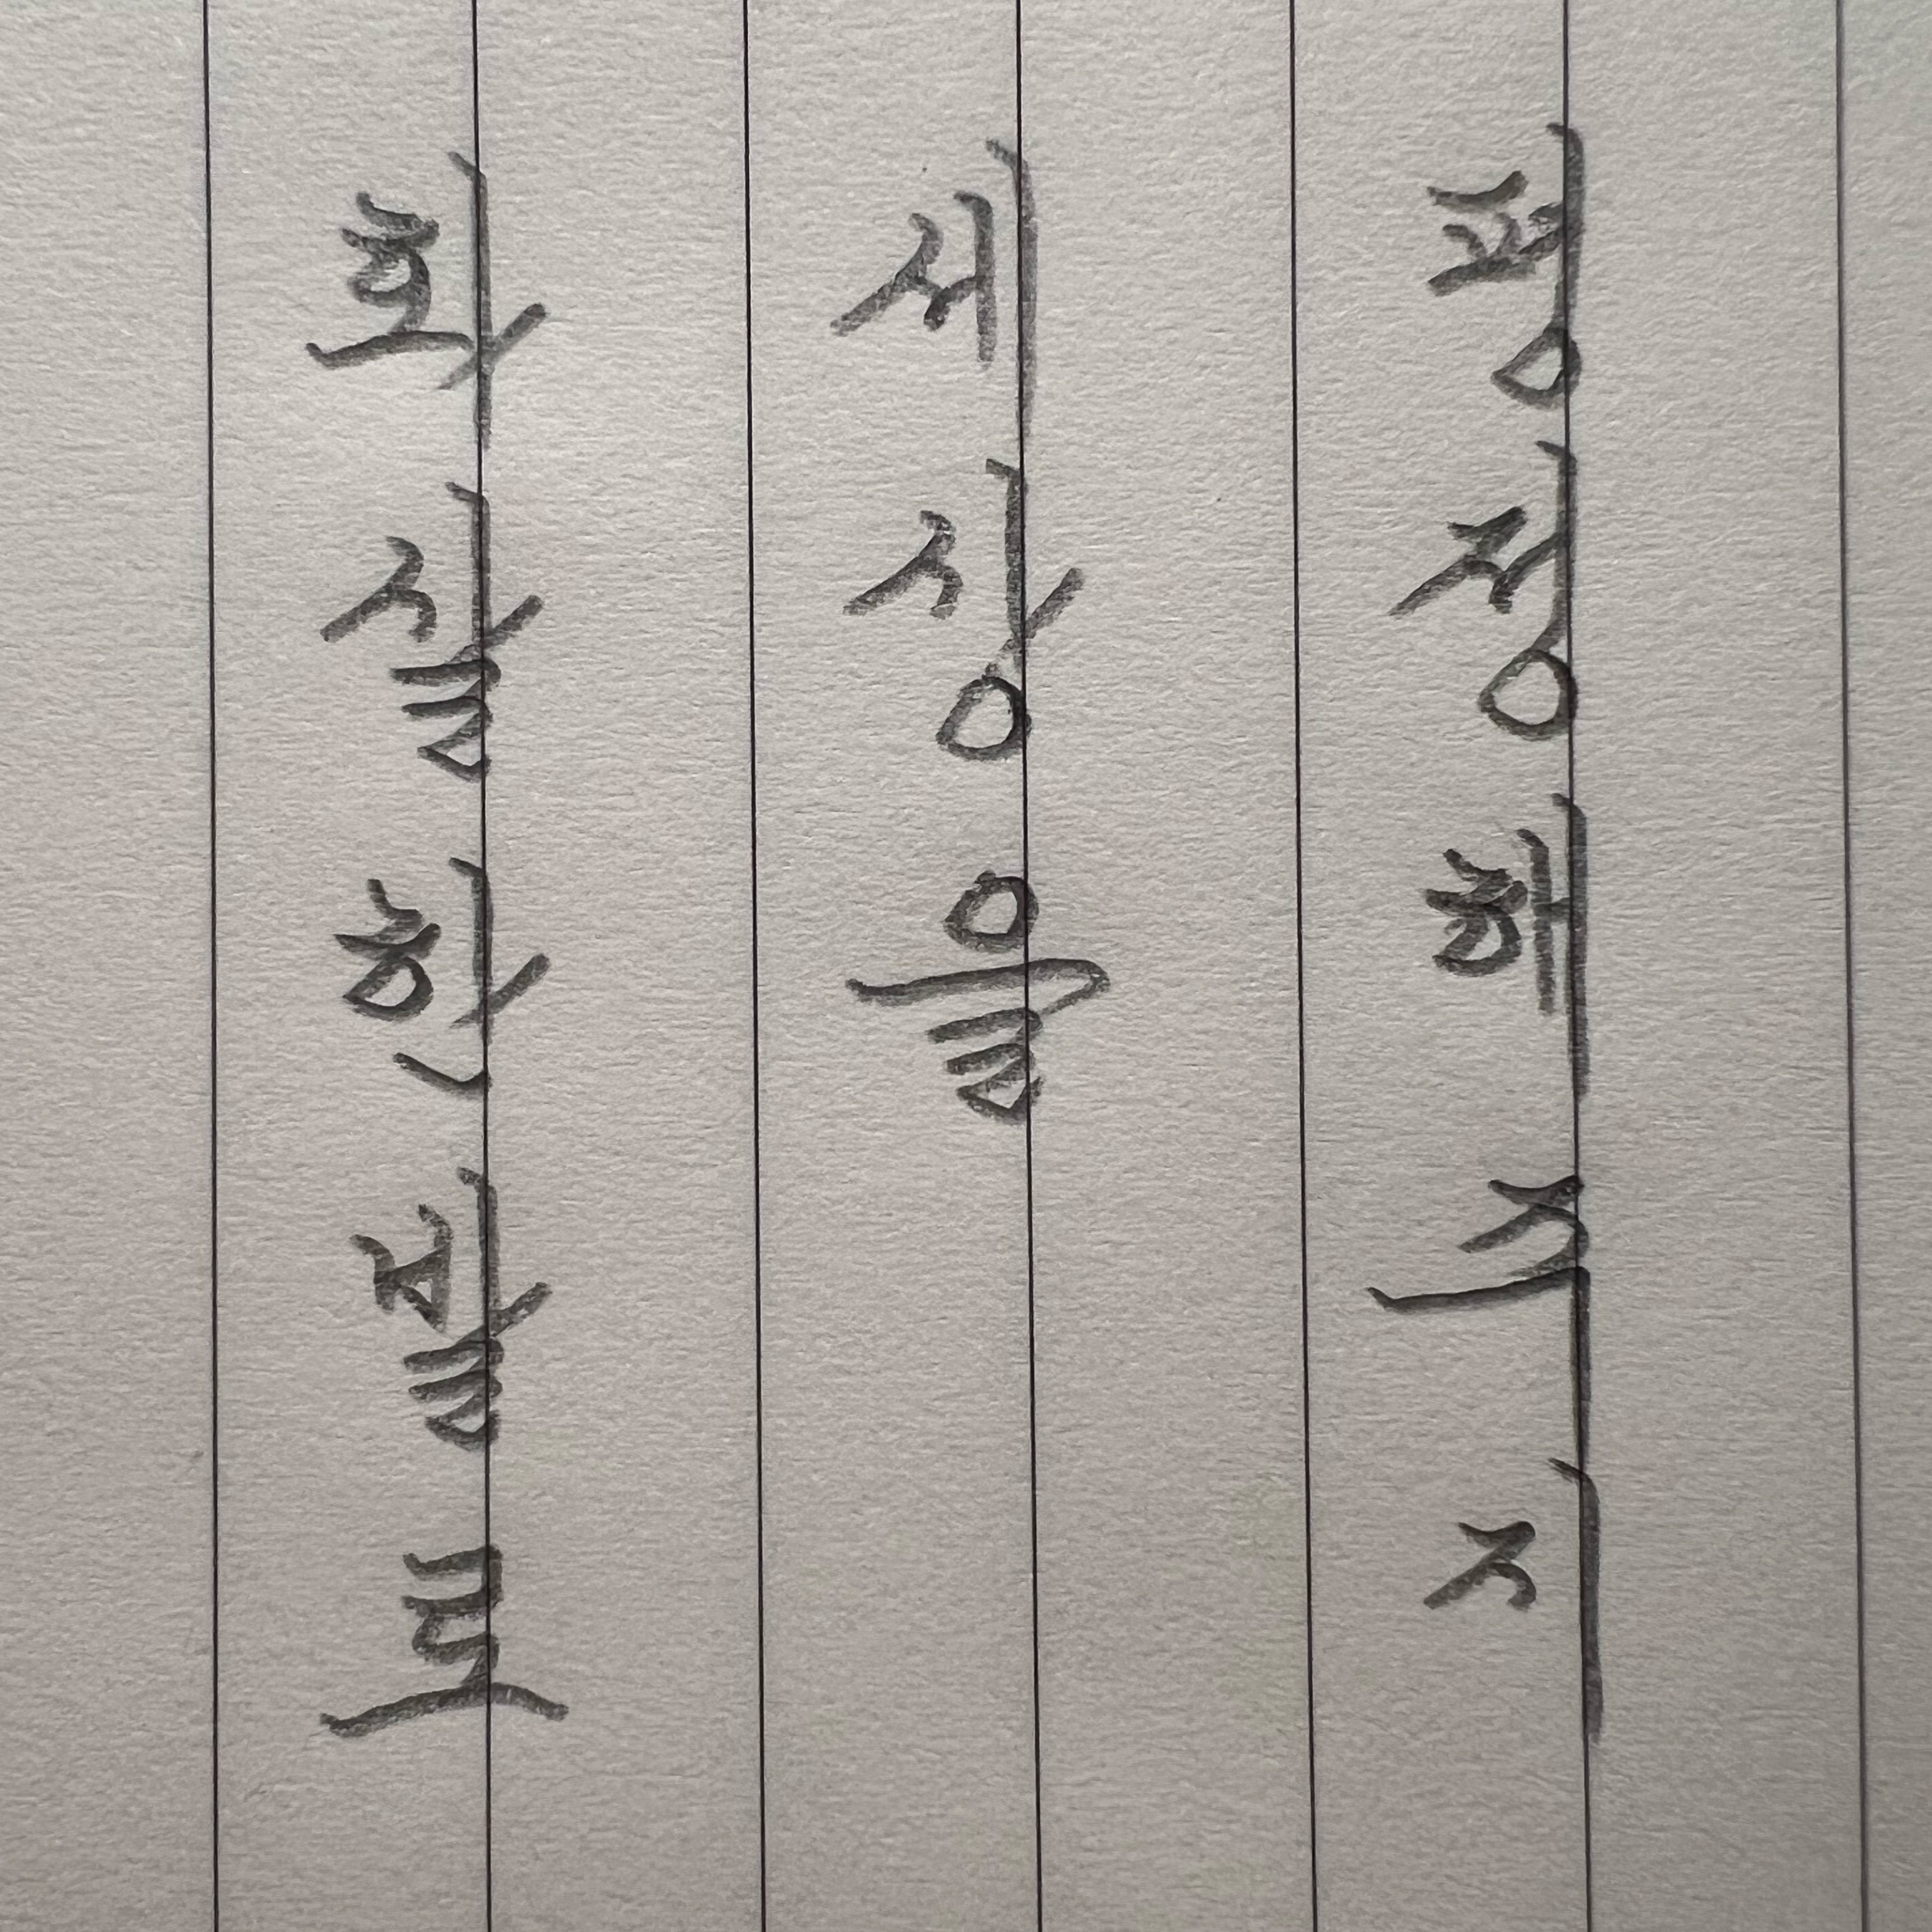 화살한발로
세상을
평정해주지